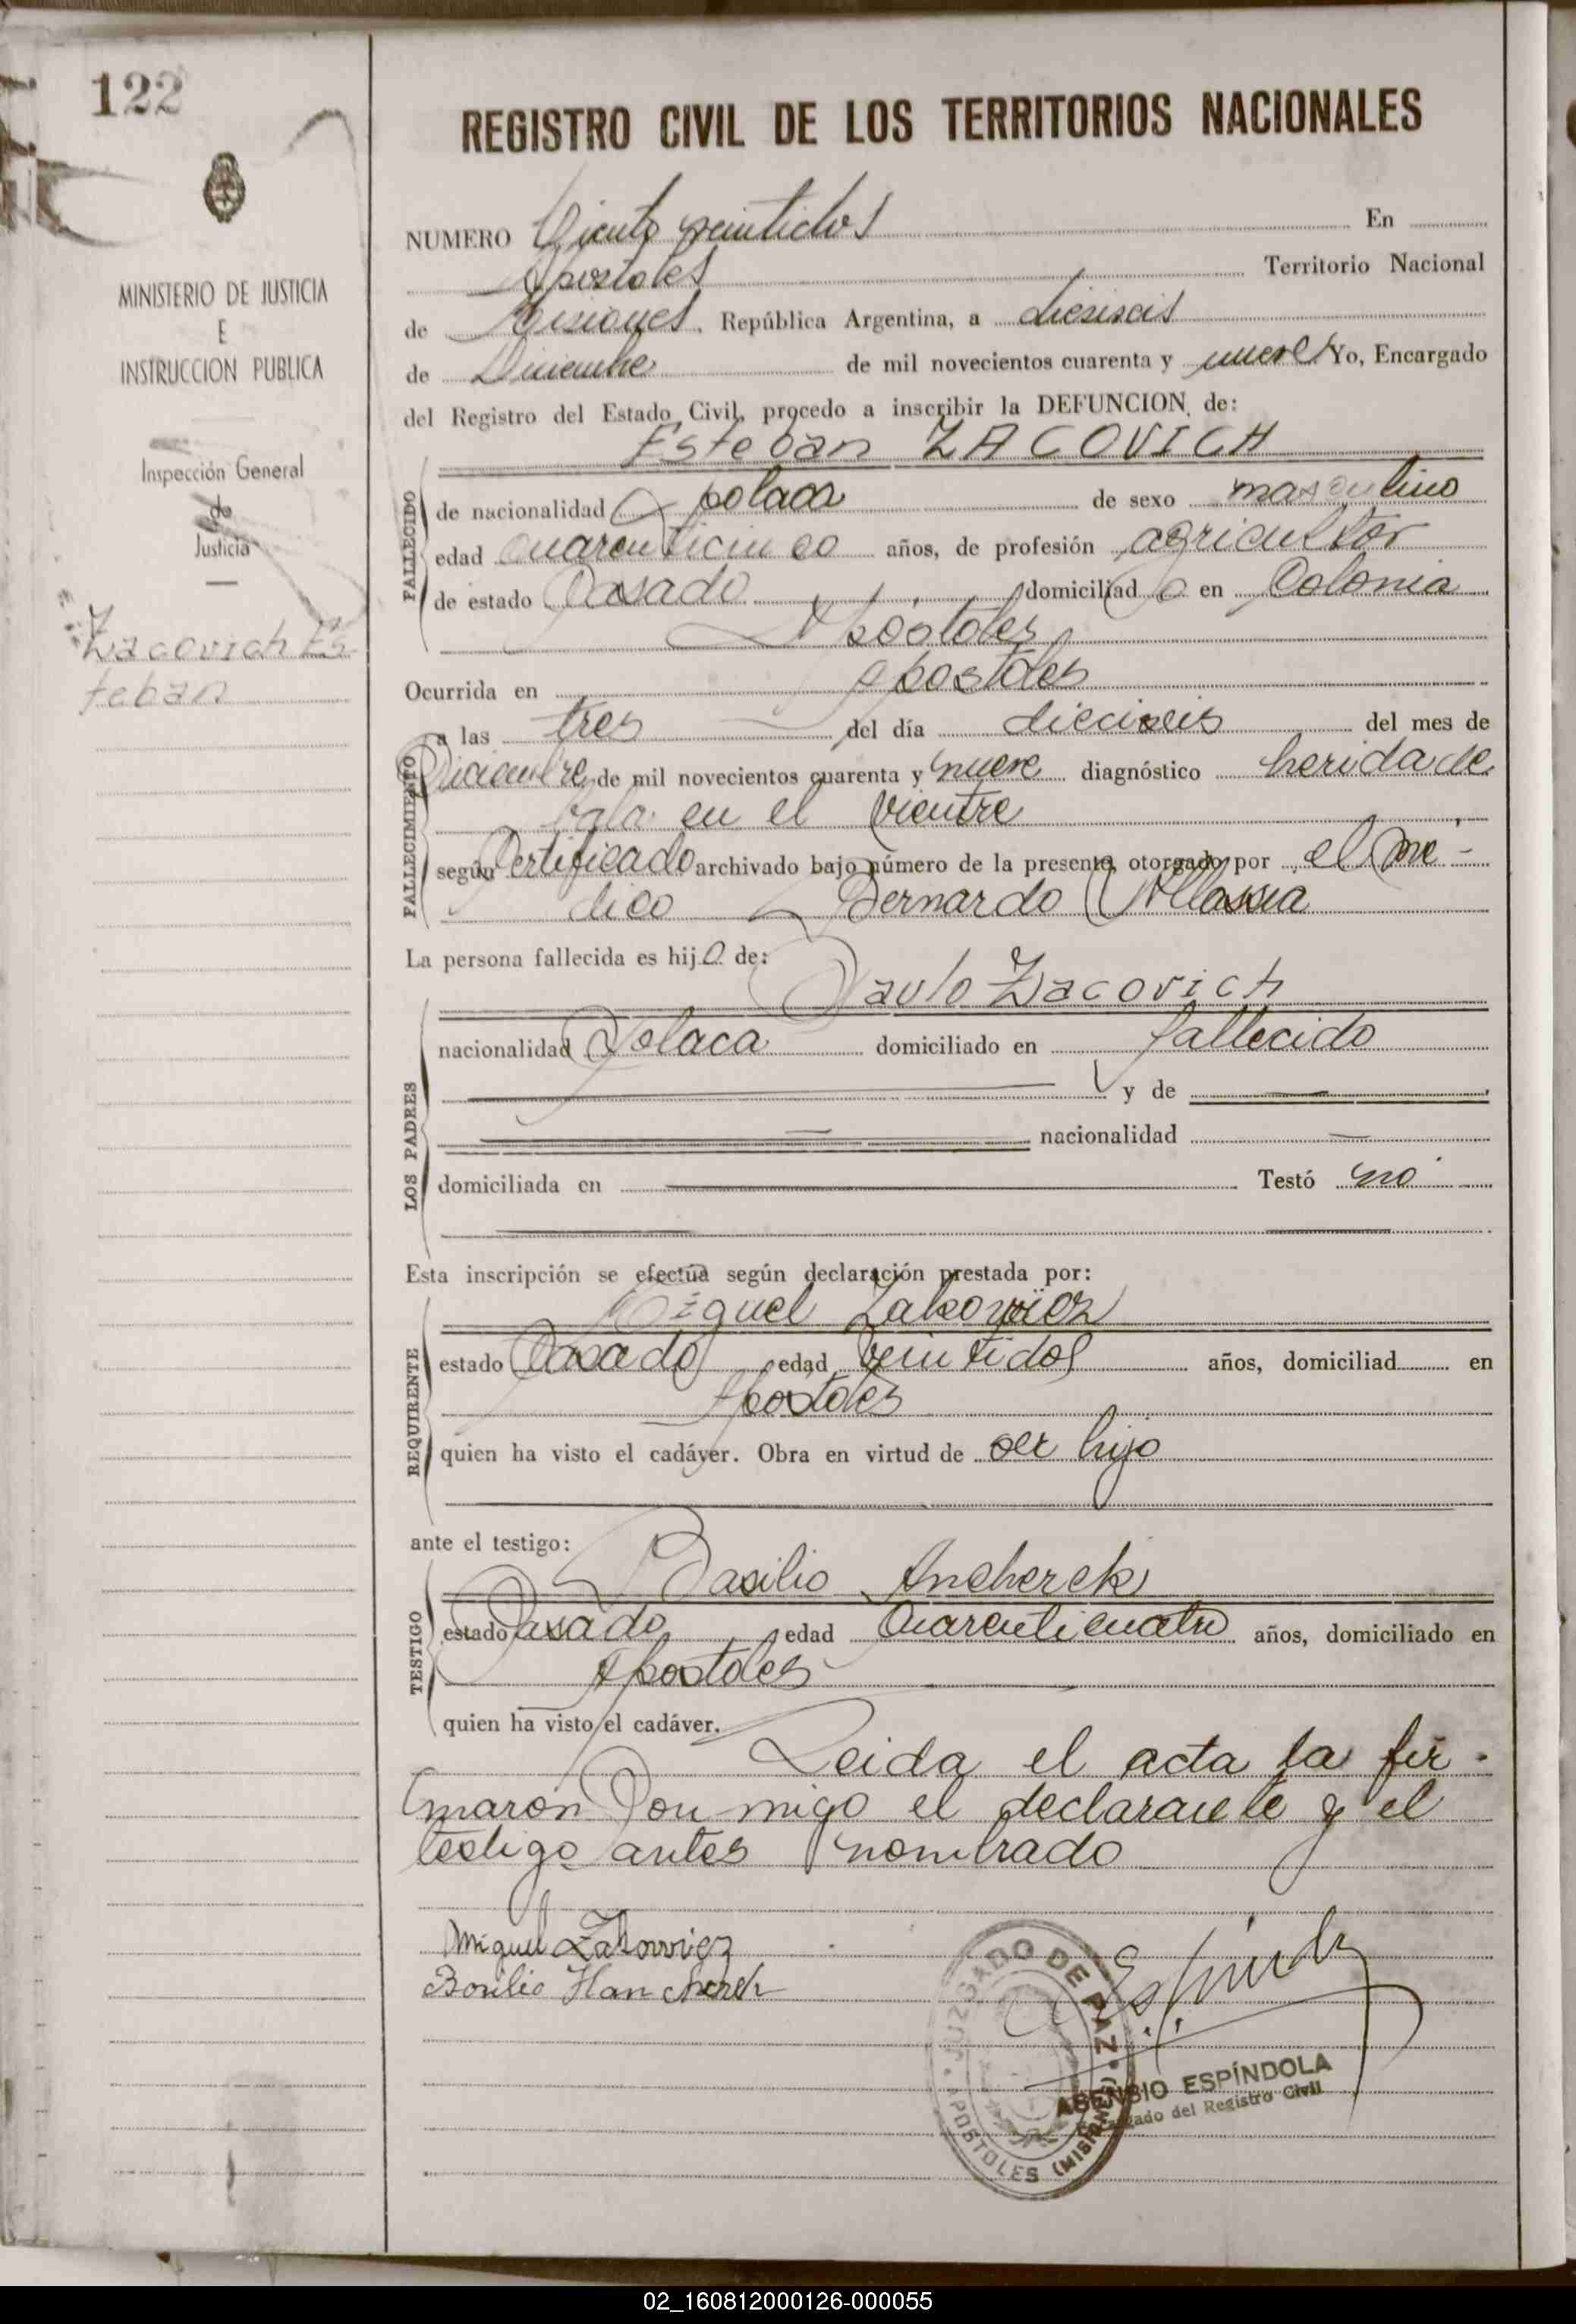 122
REGISTRO CIVIL DE LOS TERRITORIOS NACIONALES
MINISTERIO DE JUSTICIA
E
INSTRUCCION PUBLICA
Inspección General
de
Justicia
Zacovich Es-
teban
NUMERO Ciento veintidos En
Apostoles Territorio Nacional
de Misiones, República Argentina, a dieciseis
de Diciembre de mil novecientos cuarenta y nueve Yo, Encargado
del Registro del Estado Civil, procedo a inscribir la DEFUNCION de:
Esteban ZACOVICH
FALLECIDO
de nacionalidad polaca de sexo masculino
edad cuarenticinco años, de profesión agricultor
de estado Casado domiciliado en Colonia
Apóstoles
Ocurrida en Apostoles
FALLECIMIENTO
a las tres del día dieciseis del mes de
Diciembre de mil novecientos cuarenta y nueve diagnóstico herida de
bala en el vientre
según Certificado archivado bajo número de la presente, otorgado por el mé-
dico Bernardo
La persona fallecida es hijo de:
Pavlo Zacovich
LOS PADRES
nacionalidad Polaca domiciliado en fallecido
y de
nacionalidad
domiciliada en Testó no
Esta inscripción se efectúa según declaración prestada por:
Miguel Zakowicz
REQUIRENTE
estado Casado edad veintidos años, domiciliad en
Apóstoles
quien ha visto el cadáver. Obra en virtud de ser hijo
ante el testigo:
Basilio Ancherek
TESTIGO
estado Casado edad Cuarenticuatro años, domiciliado en
Apostoles
quien ha visto el cadáver.
Leida el acta la fir-
maron Conmigo el declarante y el
testigo antes nombrado
Miguel Zakowicz
Basilio Hancherek
JUZGADO DE PAZ
APOSTOLES (MISIONES)
ASENSIO ESPÍNDOLA
Encargado del Registro Civil
02_160812000126-000055